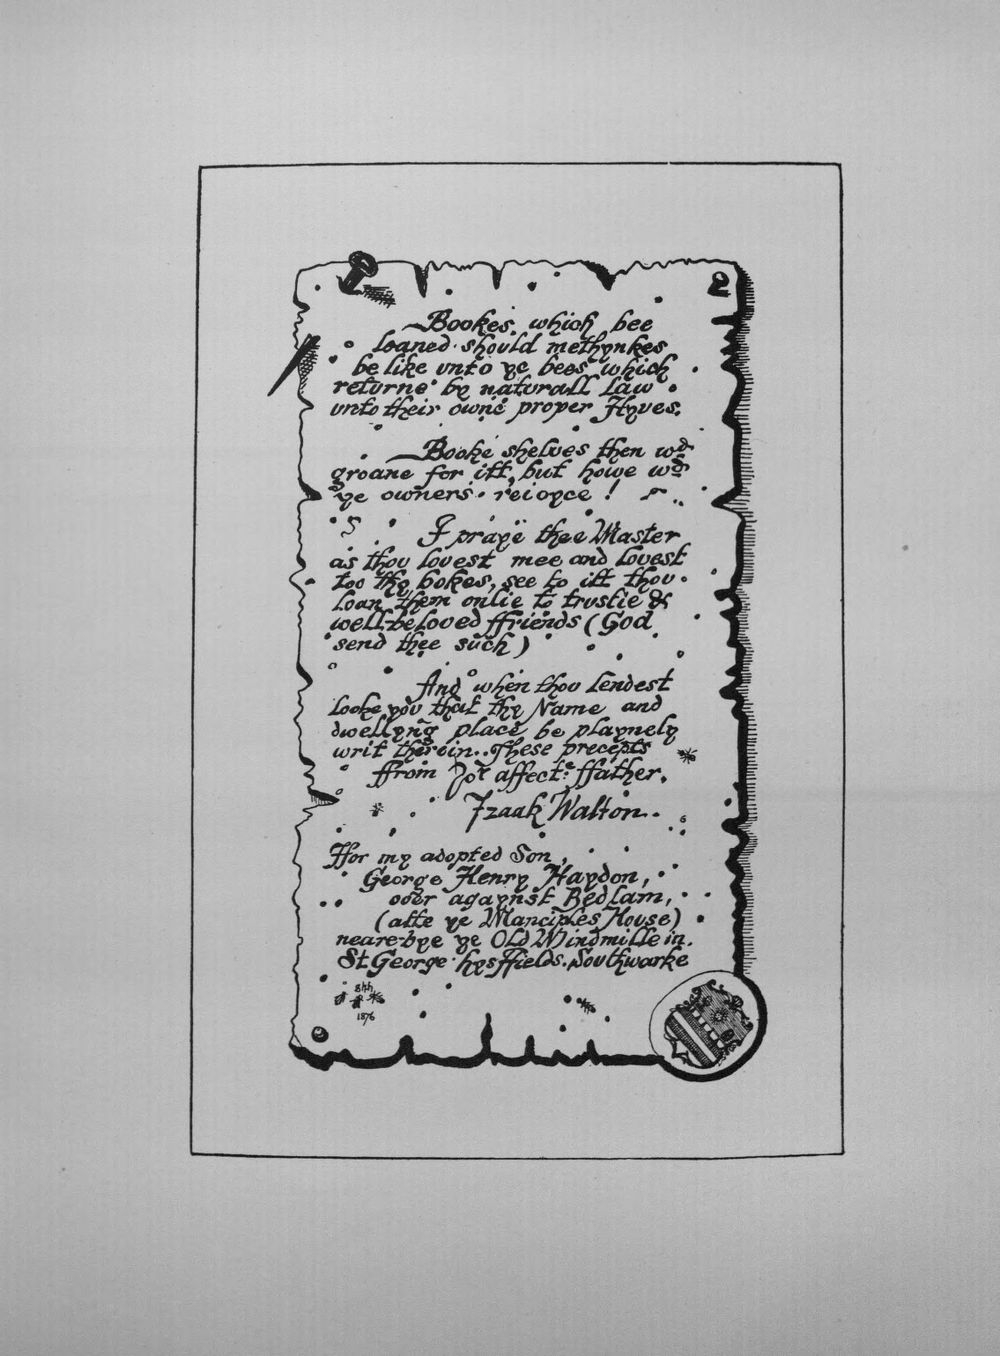 Bookes, which bee
loaned should methynkes
be like vnto ye bees which
returne by naturall Law
vnto their owne proper Hyves.
Booke shelves then wd
groane for itt, but howe wd
ye owners reioyce !
I praye thee Master
as thou lovest mee and lovest
too thy bokes, see to itt thou
loan them onlie to trustie &
well-beloved ffriends (God
send thee such)
And when thou lendest
looke you that thy Name and
dwellyng place be playnely
writ therein. These precepts
ffrom yor affecte: ffather.
Izaak Walton.
Ffor my adopted Son,
George Henry Haydon,
over agaynst Bedlam,
(atte ye Manciples House)
neare-bye ye Old Windmille in.
St George hys ffields. Southwarke
1876